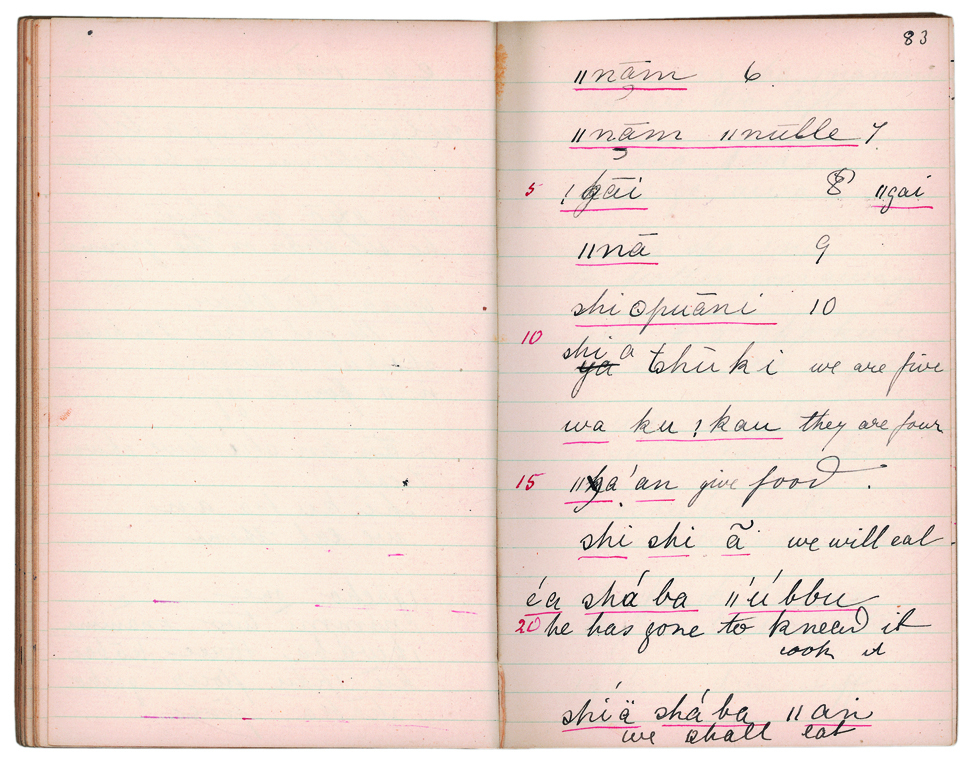 83
ǁnām 6
ǁnām ǁnūlle 7
5 ! gāi 8 ǁgai
ǁnā 9
shi opuāni 10
10
shi a
ya tshūki we are five
wa ku !kau they are four
15 ǁga'an give food.
shi shi ã we will eat.
éa shá ba ǁúbbu
20 he has gone to knead it
cook it
shíä shá ba ǁan
we shall eat